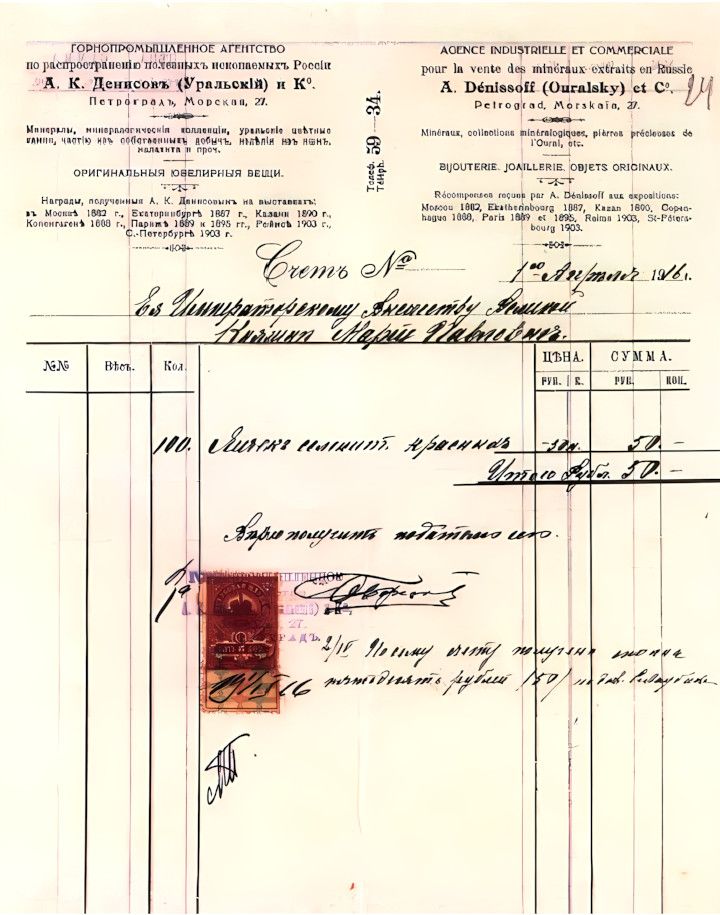 ГОРНОПРОМЫШЛЕННОЕ АГЕНТСТВО
по распространенію полезныхъ ископаемыхъ Россіи
А. К. Денисовъ (Уральскій) и К°.
Петроградъ, Морская, 27.
Минералы, минералогическія коллекціи, уральскіе цвѣтные
камни, частію изъ собственныхъ добычъ, издѣлія изъ яшмъ,
малахита и проч.
ОРИГИНАЛЬНЫЯ ЮВЕЛИРНЫЯ ВЕЩИ.
Награды, полученныя А. К. Денисовымъ на выставкахъ:
въ Москвѣ 1882 г., Екатеринбургѣ 1887 г., Казани 1890 г.,
Копенгагенѣ 1888 г., Парижѣ 1889 и 1895 гг., Реймсѣ 1903 г.,
С.-Петербургѣ 1903 г.
Телеф. 59—34.
Téléph.
AGENCE INDUSTRIELLE ET COMMERCIALE
pour la vente des minéraux extraits en Russie
A. Dénissoff (Ouralsky) et C°.
Petrograd, Morskaïa, 27.
24
Minéraux, collections minéralogiques, pièrres précieuses de
l'Oural, etc.
BIJOUTERIE. JOAILLERIE. OBJETS ORIGINAUX.
Récompenses reçues par A. Dénissoff aux expositions:
Moscou 1882, Ekathérinbourg 1887, Kazan 1890, Copen-
hague 1888, Paris 1889 et 1895, Reims 1903, St-Péters-
bourg 1903.
Счетъ №
1го Апрѣля 1916 г.
Ея Императорскому Высочеству Великой
Княгинѣ Маріи Павловнѣ.
№№ Вѣсъ. Кол. ЦѢНА. СУММА.
РУБ. К. РУБ. КОП.
100. Яичекъ селенит. красныхъ —50к. 50.—
Итого Рубл. 50.—
Вѣрю получить подателю сего.
27.
2/IV По сему счету получено сполна
пятьдесятъ рублей /50/
19 16